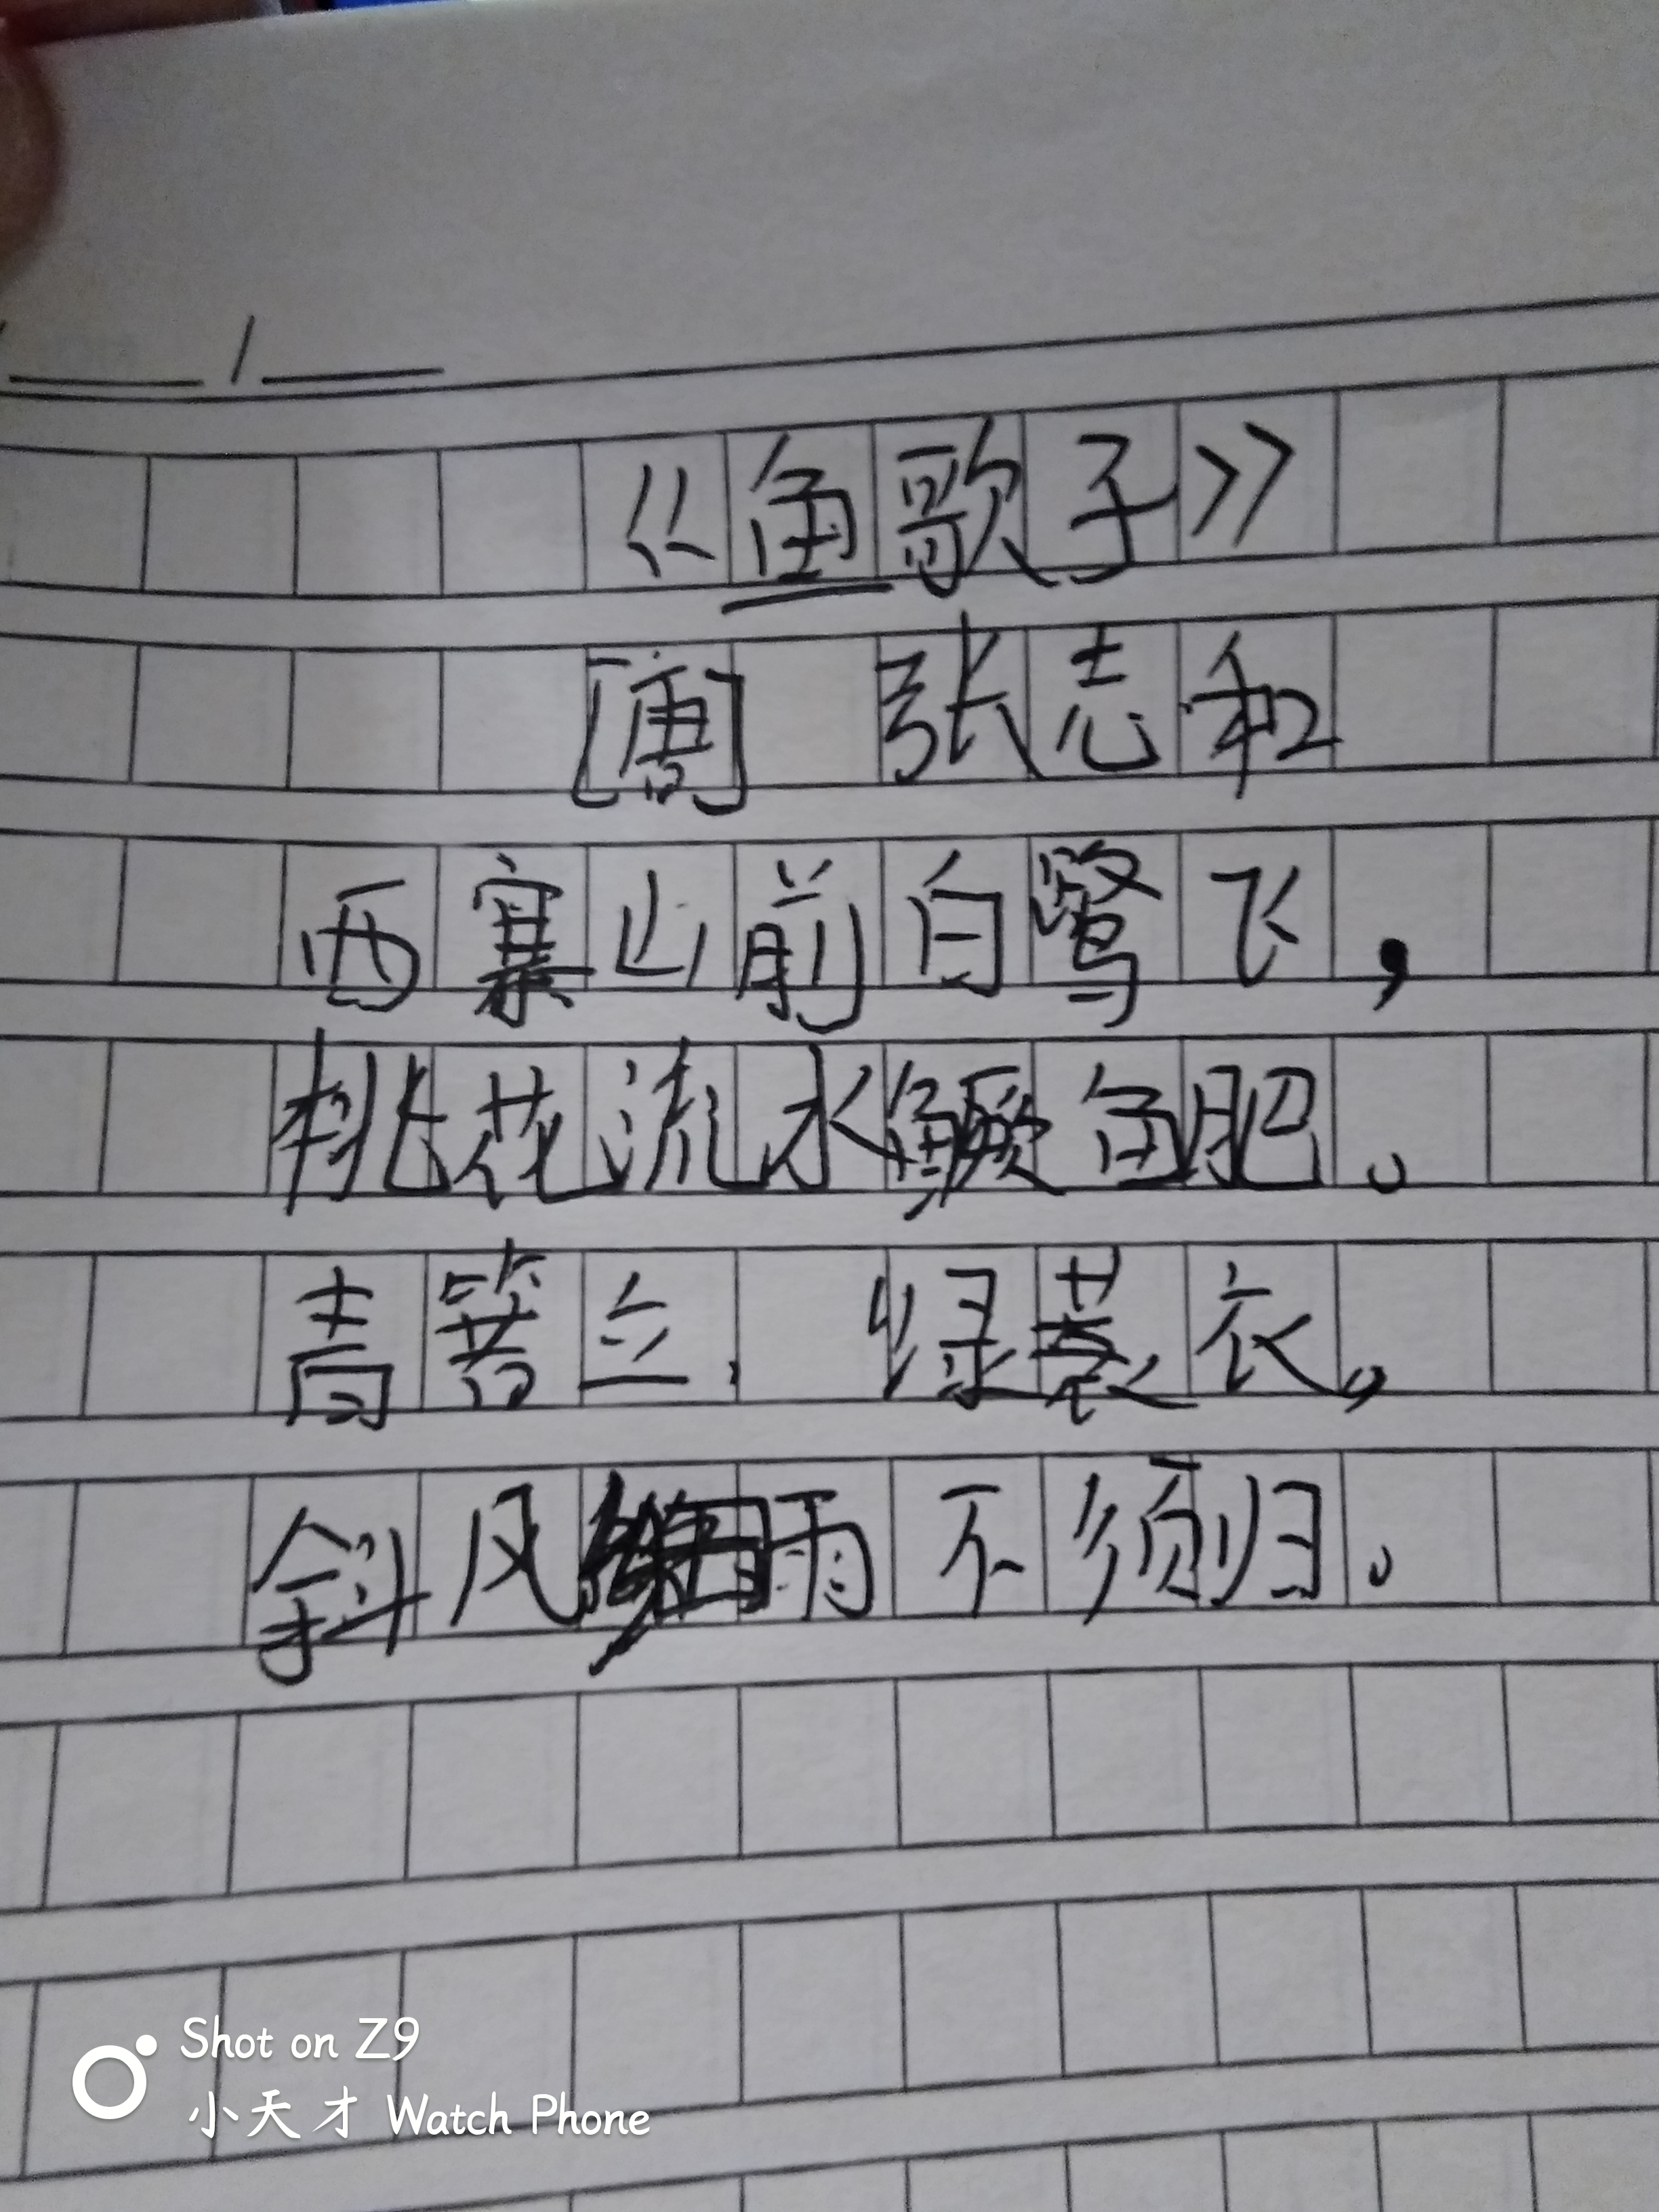 《鱼歌子》
[唐] 张志和
西塞山前白鹭飞，
桃花流水鳜鱼肥。
青箬立，绿蓑衣，
斜风细雨不须归。
Shot on Z9
小天才 Watch Phone